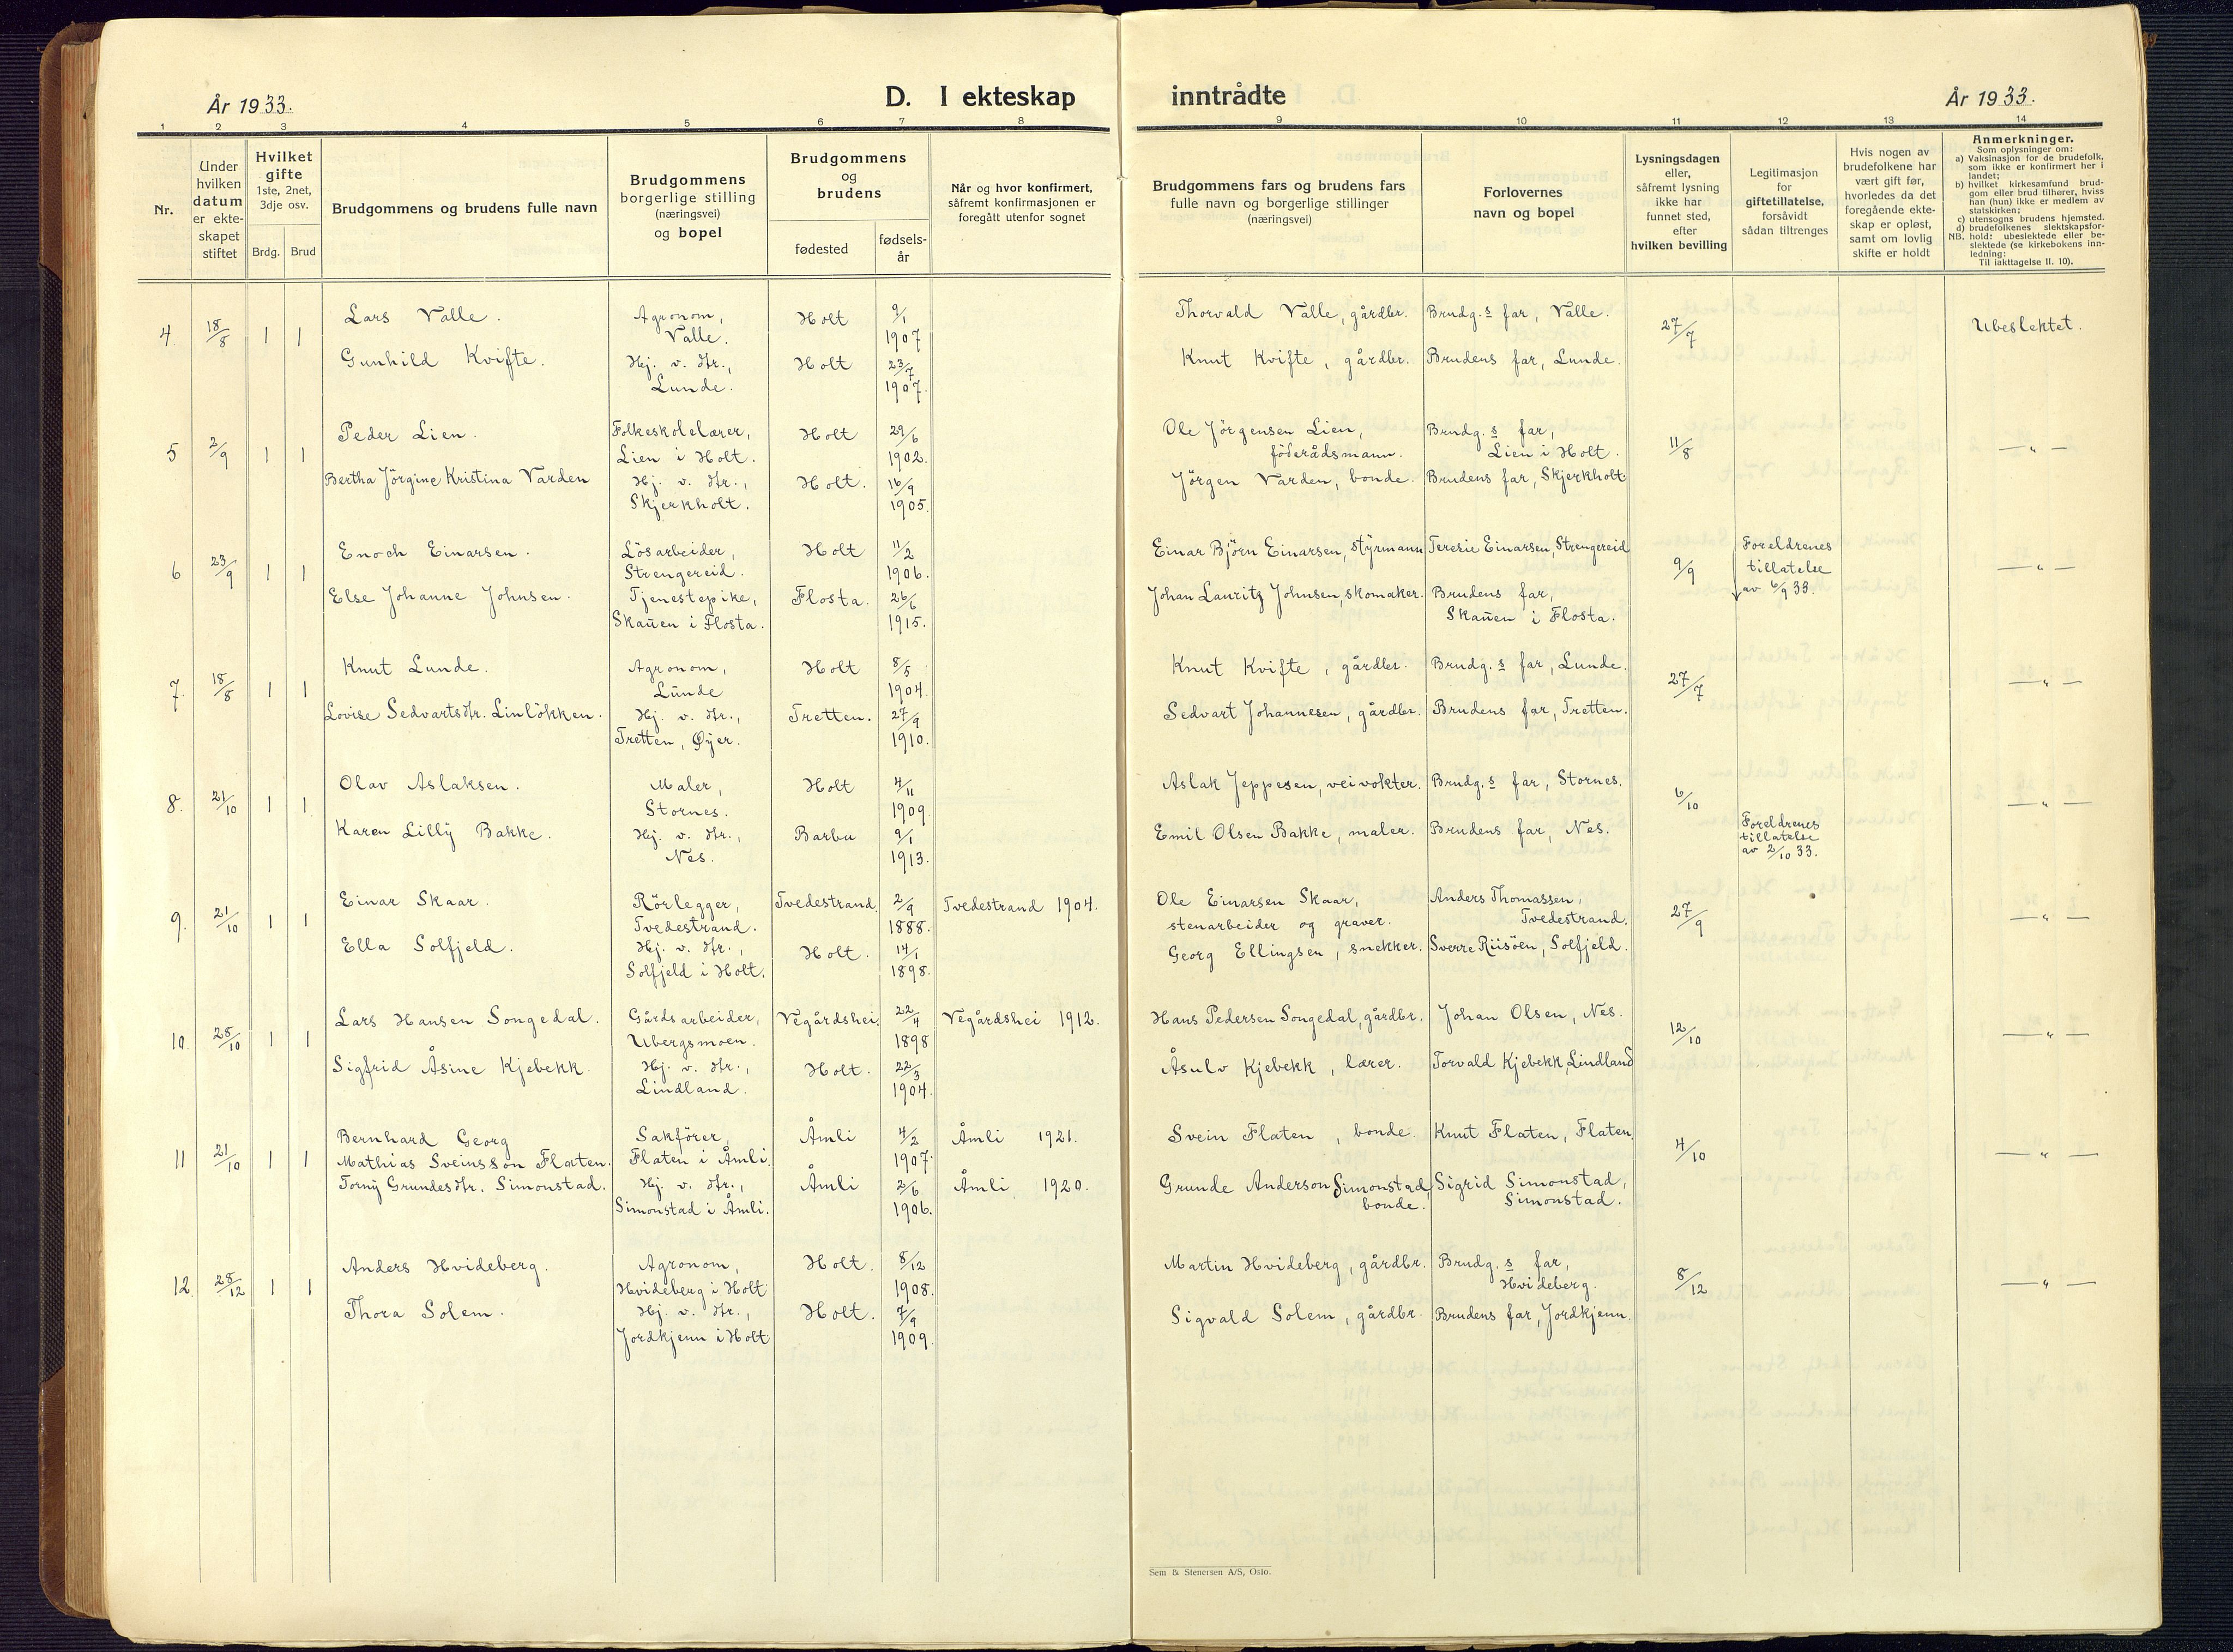 År 1933.
D. I ekteskap
inntrådte
År 1933.
1 2 3 4 5 6 7 8 9 10 11 12 13 14
Nr.
Under
hvilken
datum
er ekte-
skapet
stiftet
Hvilket
gifte
1ste, 2net,
3dje osv.
Brdg. Brud
Brudgommens og brudens fulle navn
Brudgommens
borgerlige stilling
(næringsvei)
og bopel
Brudgommens
og
brudens
fødested
fødsels-
år
Når og hvor konfirmert,
såfremt konfirmasjonen er
foregått utenfor sognet
Brudgommens fars og brudens fars
fulle navn og borgerlige stillinger
(næringsvei)
Forlovernes
navn og bopel
Lysningsdagen
eller,
såfremt lysning
ikke har
funnet sted,
efter
hvilken bevilling
Legitimasjon
for
giftetillatelse,
forsåvidt
sådan tiltrenges
Hvis nogen av
brudefolkene har
vært gift før,
hvorledes da det
foregående ekte-
skap er opløst,
samt om lovlig
skifte er holdt
Anmerkninger.
Som oplysninger om:
a) Vaksinasjon for de brudefolk,
som ikke er konfirmert her i
landet;
b) hvilket kirkesamfund brud-
gom eller brud tilhører, hviss
han (hun) ikke er medlem av
statskirken;
c) utensogns brudens hjemsted.
d) brudefolkenes slektskapsfor-
NB. hold: ubeslektede eller be-
slektede (se kirkebokens inn-
ledning:
Til iakttagelse II. 10).
4. 18/8 1 1 Lars Valle. Agronom, Holt 9/1 Thorvald Valle, gårdbr. Brudg.s far, Valle. 27/7 Ubeslektet.
Valle. 1907
Gunhild Kvifte. Hj. v. dtr., Holt 23/7 Knut Kvifte, gårdbr. Brudens far, Lunde.
Lunde. 1907.
5 2/9 1 1 Peder Lien. Folkeskolelærer, Holt 29/6 Ole Jörgensen Lien, Brudg.s far, 11/8 — „ —
Lien i Holt. 1902. föderådsmann. Lien i Holt.
Bertha Jörgine Kristina Varden Hj. v. dtr., Holt. 16/9 Jörgen Varden, bonde. Brudens far, Skjerkholt
Skjerkholt. 1905.
6 23/9 1 1 Enoch Einarsen. Lösarbeider, Holt 11/2 Einar Björn Einarsen, styrmann Teresie Einarsen, Strengereid 9/9 Foreldrenes — „ —
Strengereid. 1906. tillatelse
Else Johanne Johnsen. Tjenestepike, Flosta. 26/6 Johan Lauritz Johnsen, skomaker. Brudens far, av 6/9 33.
Skaŭen i Flosta. 1915. Skaŭen i Flosta.
7. 18/8 1 1 Knut Lunde. Agronom, Holt 8/5 Knut Kvifte, gårdbr. Brudg.s far, Lunde. 27/7 — „ —
Lunde 1904.
Lovise Sedvartsdtr. Linlökken. Hj. v. dtr., Tretten. 27/9 Sedvart Johannesen, gårdbr. Brudens far, Tretten.
Tretten, Øyer. 1910.
8. 21/10 1 1 Olav Aslaksen. Maler, Holt 4/11 Aslak Jeppesen, veivokter. Brudg.s far, Stornes. 6/10 — „ —
Stornes. 1909
Karen Lilly Bakke. Hj. v. dtr., Barbu 9/1 Emil Olsen Bakke, maler. Brudens far, Nes. Foreldrenes
Nes. 1913. tillatelse
av 2/10 33.
9. 21/10 1 1 Einar Skaar. Rörlegger, Tvedestrand. 2/9 Tvedestrand 1904. Ole Einarsen Skaar, Anders Thomassen, 27/9 — „ —
Tvedestrand. 1888. stenarbeider og graver. Tvedestrand.
Ella Solfjeld. Hj. v. dtr., Holt. 14/1 Georg Ellingsen, snekker. Sverre Riisöen, Solfjeld.
Solfjeld i Holt. 1898.
10. 28/10 1 1 Lars Hansen Songedal. Gårdsarbeider, Vegårdshei. 22/4 Vegårdshei 1912. Hans Pedersen Songedal, gårdbr. Johan Olsen, Nes. 12/10 — „ —
Ubergsmoen. 1898
Sigfrid Åsine Kjebekk. Hj. v. dtr., Holt. 22/3 Åsulv Kjebekk, lærer. Torvald Kjebekk, Lindland
Lindland. 1904.
11 21/10 1 1 Bernhard Georg Sakförer, Åmli 4/2 Åmli 1921. Svein Flaten, bonde. Knut Flaten, Flaten. 4/10 — „ —
Mathias Sveinsson Flaten. Flaten i Åmli. 1907.
Torny Grundesdtr. Simonstad. Hj. v. dtr., Åmli 2/6 Åmli 1920. Grunde Anderson Simonstad, Sigrid Simonstad,
Simonstad i Åmli. 1906. bonde. Simonstad.
12. 28/12 1 1 Anders Hvideberg. Agronom, Holt. 8/12 Martin Hvideberg, gårdbr. Brudg.s far, 8/12 — „ —
Hvideberg i Holt 1908. Hvideberg.
Thora Solem. Hj. v. dtr., Holt. 7/9 Sigvald Solem, gårdbr. Brudens far, Jordkjenn.
Jordkjenn i Holt 1909.
Sem & Stenersen A/S, Oslo.